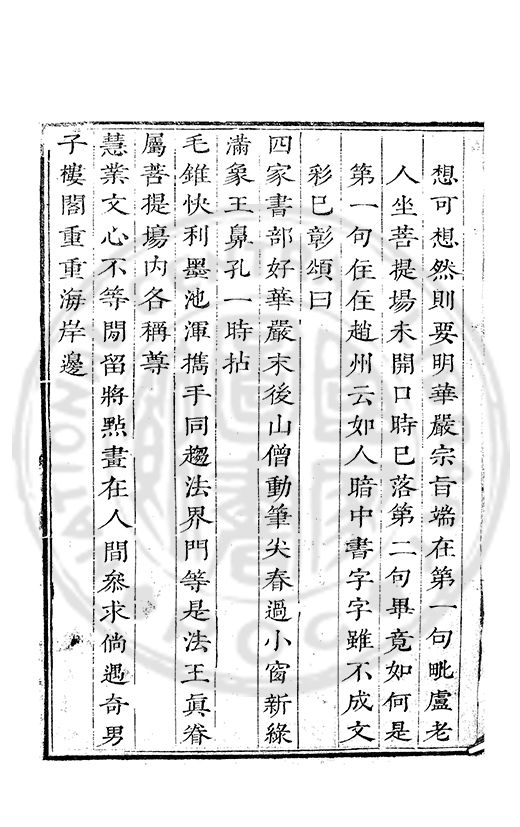 想可想然則要明華嚴宗旨端在第一句毗盧老
人坐菩提場未開口時已落第二句畢竟如何是
第一句住住趙州云如人暗中書字字雖不成文
彩已彰頌曰
四家書部好華嚴末後山僧動筆尖春過小窗新綠
滿象王鼻孔一時拈
毛錐快利墨池渾攜手同趨法界門等是法王眞眷
屬菩提場內各稱尊
慧業文心不等閒留將點畫在人間叅求倘遇奇男
子樓閣重重海岸邊